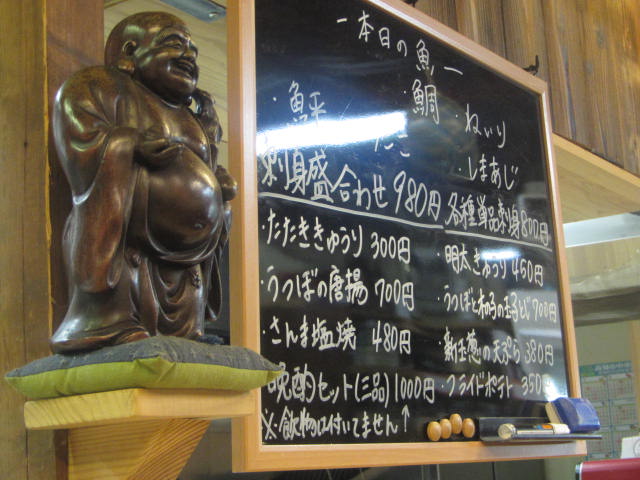 一本日の魚一
・鮃 ・鯛 ・ねいり
たこ ・しまあじ
刺身盛合わせ 980円 各種単品刺身800円
・たたききゅうり 300円
・うつぼの唐揚 700円
・さんま塩焼 480円
晩酌セット(三品)1000円
※飲物は付いてません↑
明太きゅうり 450円
・うつぼと木の子の玉子とじ 700円
・新玉葱の天ぷら 380円
・フライドポテト 350円